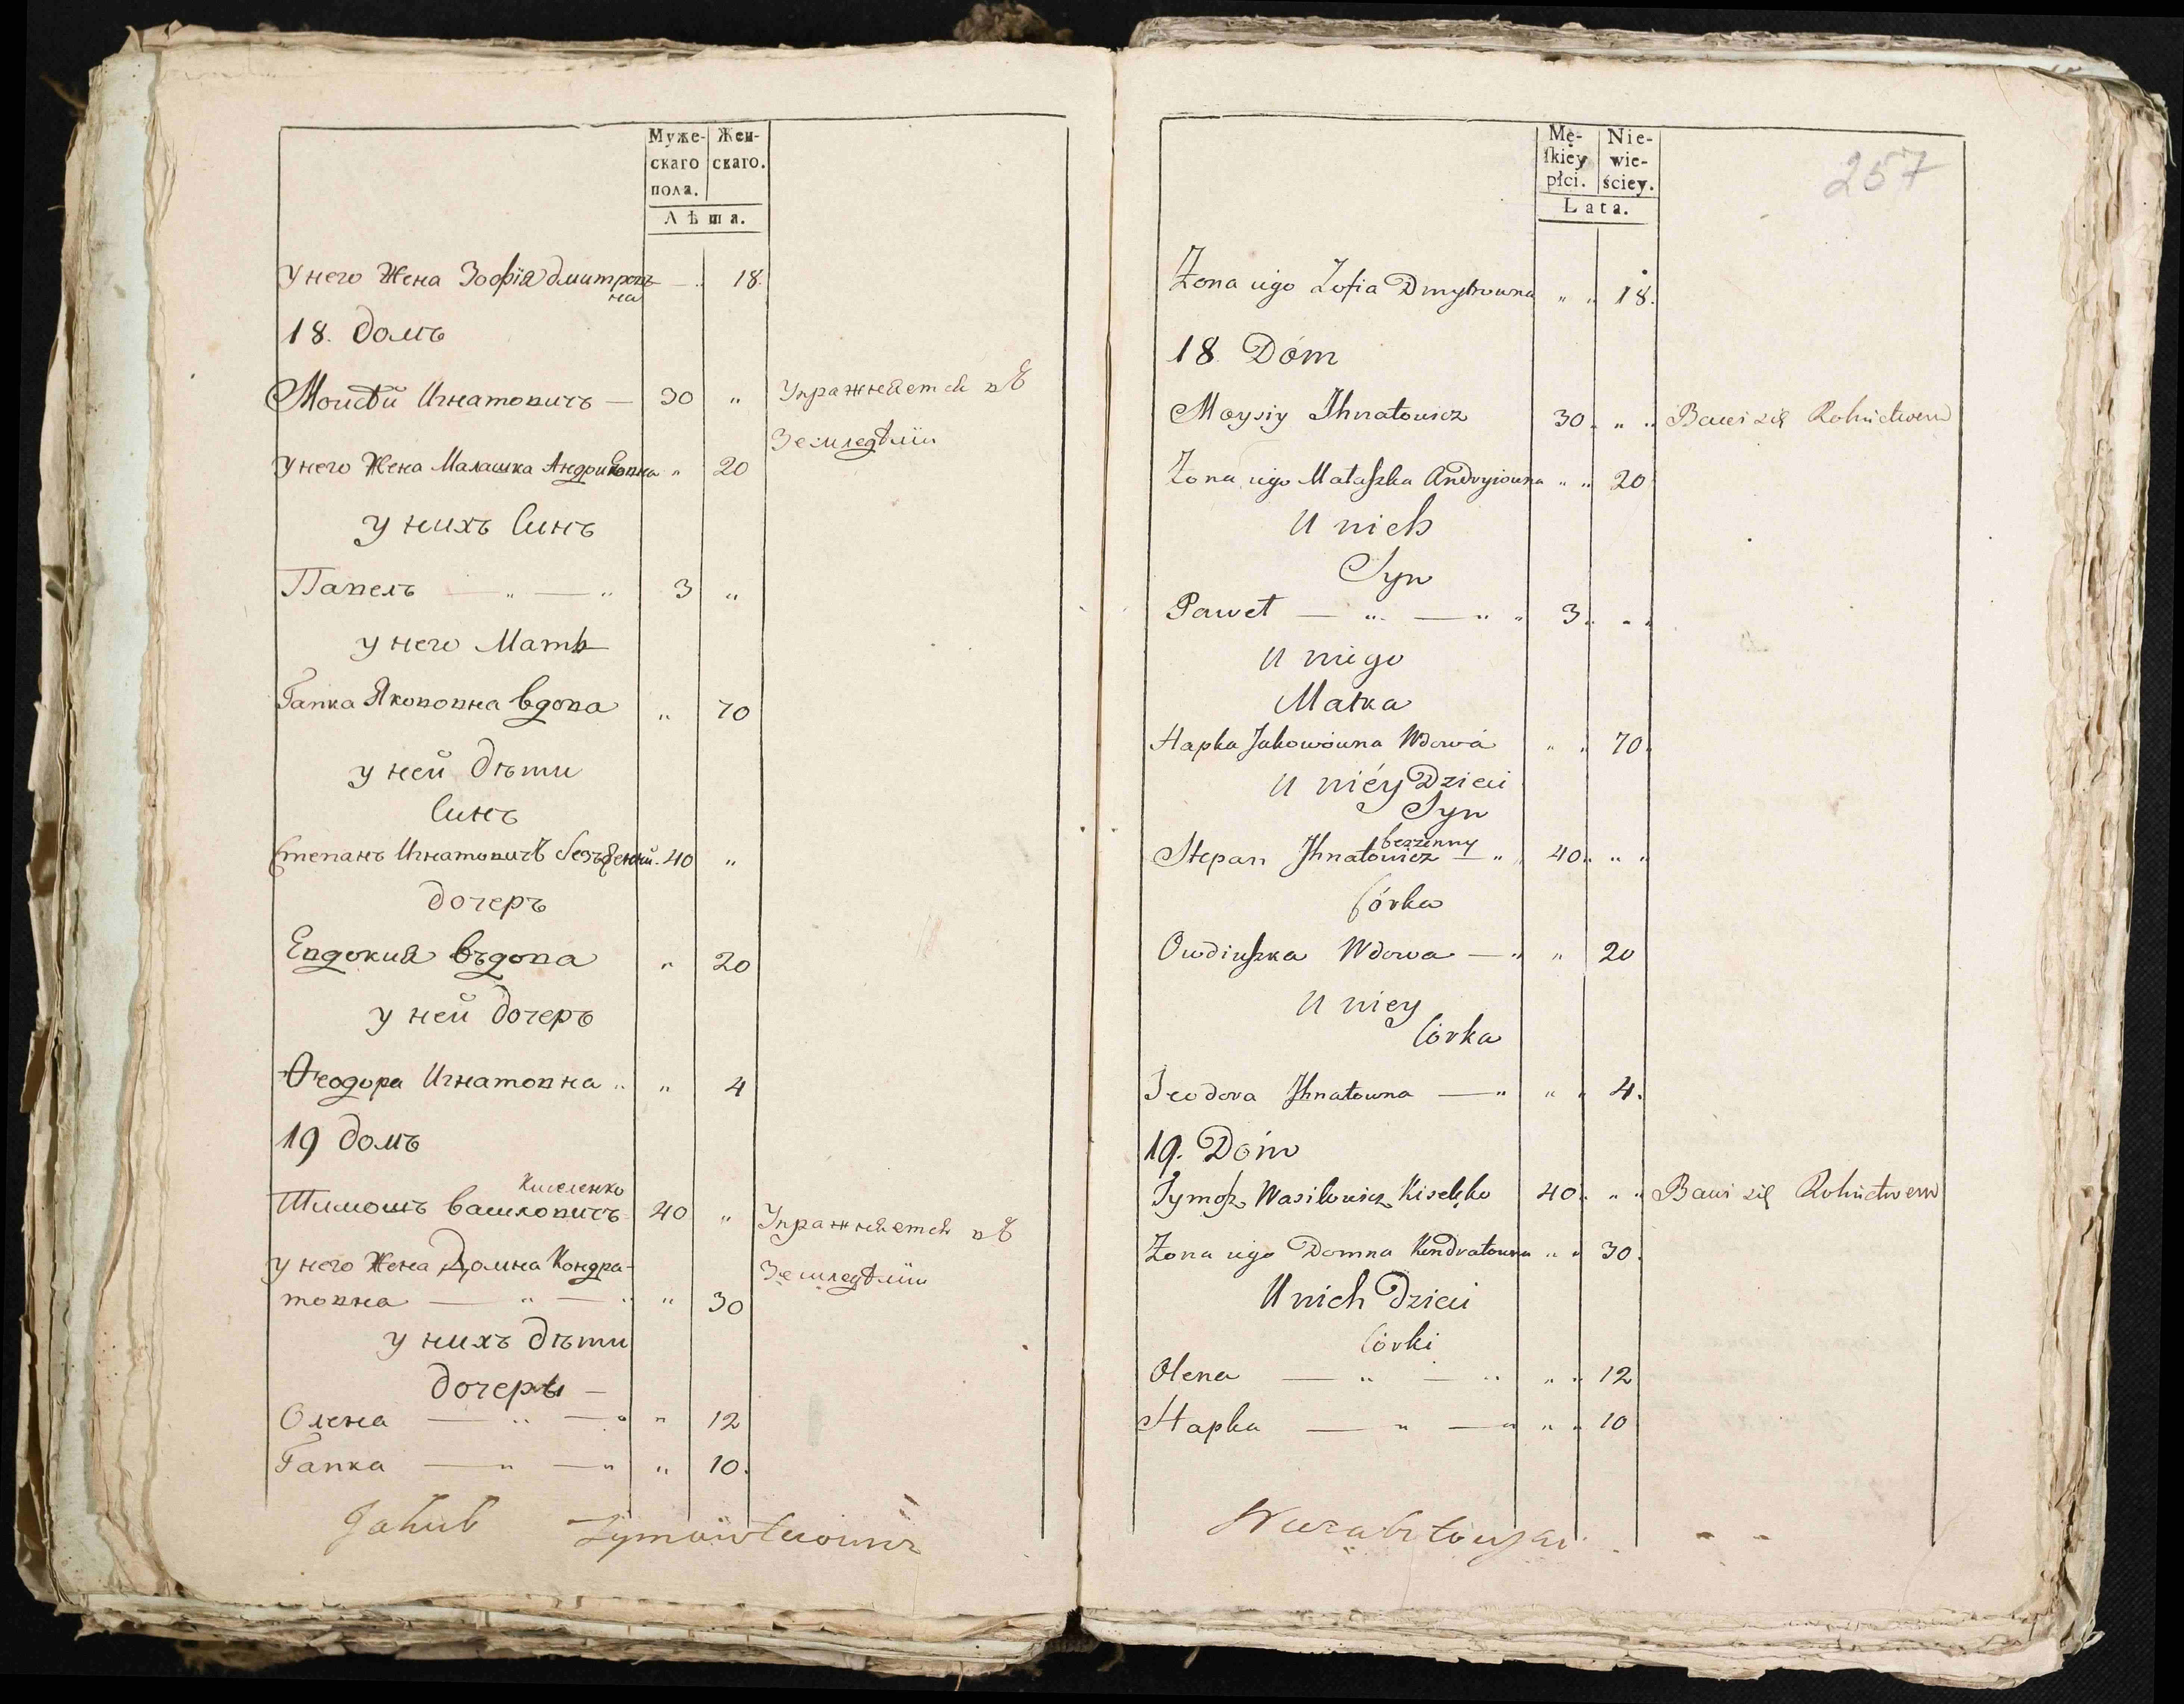 Муже-
скаго
пола.
Жен-
скаго.
Лѣта.
у него Жена Зофія Дмитров
на — „ 18.
18. Домъ
Моисѣй Игнатовичъ — 30 „ Упражняется въ
Земледѣліи
у него Жена Малашка Андриевна „ 20
у нихъ Синъ
Павелъ — „ — „ 3 „
у него Мать
Гапка Якововна вдова „ 70
у ней Дѣти
Синъ
Степанъ Игнатовичъ безженный. 40 „
дочеръ
Евдокия въдова „ 20
у ней Дочеръ
Ѳеодора Игнатовна „ „ 4
19 Домъ
Киселенко
Тимошъ Василовичъ 40 „ Упражняется въ
Земледѣліи
у него Жена Домна Кондра-
товна — „ — „ „ 30
у нихъ Дѣти
Дочеры —
Олена — „ — „ „ 12
Гапка — „ — „ „ 10.
Jakub
Mę-
ſkiey
płci.
Nie-
wie-
ściey.
Lata.
257
Żona iego Zofia Dmytrowna „ „ 18.
18 Dóm
Moysiy Ihnatowicz 30. „ „ Bawi się Rolnictwem
Żona iego Małaſzka Andryiowna „ „ 20
U nich
Syn
Paweł — „ — „ „ 3. „ „
U niego
Matka
Hapka Jakowówna Wdowa „ „ 70.
U niéy Dzieci
Syn
bezżenny
Stepan Ihnatowicz — „ „ 40. „ „
Córka
Owdiuſzka Wdowa — „ „ 20
U niey
Córka
Teodora Ihnatowna — „ „ „ 4.
19. Dóm
Tymoſz Wasilowicz Kiselęko 40. „ „ Bawi się Rolnictwem
Żona iego Domna Kondratowna „ „ 30.
U nich Dzieci
Córki
Olena — „ — „ „ „ 12
Hapka — „ — „ „ „ 10